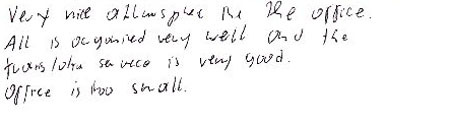 Very nice atmospher in the office.
All is organised very well and the
translation service is very good.
Office is too small.